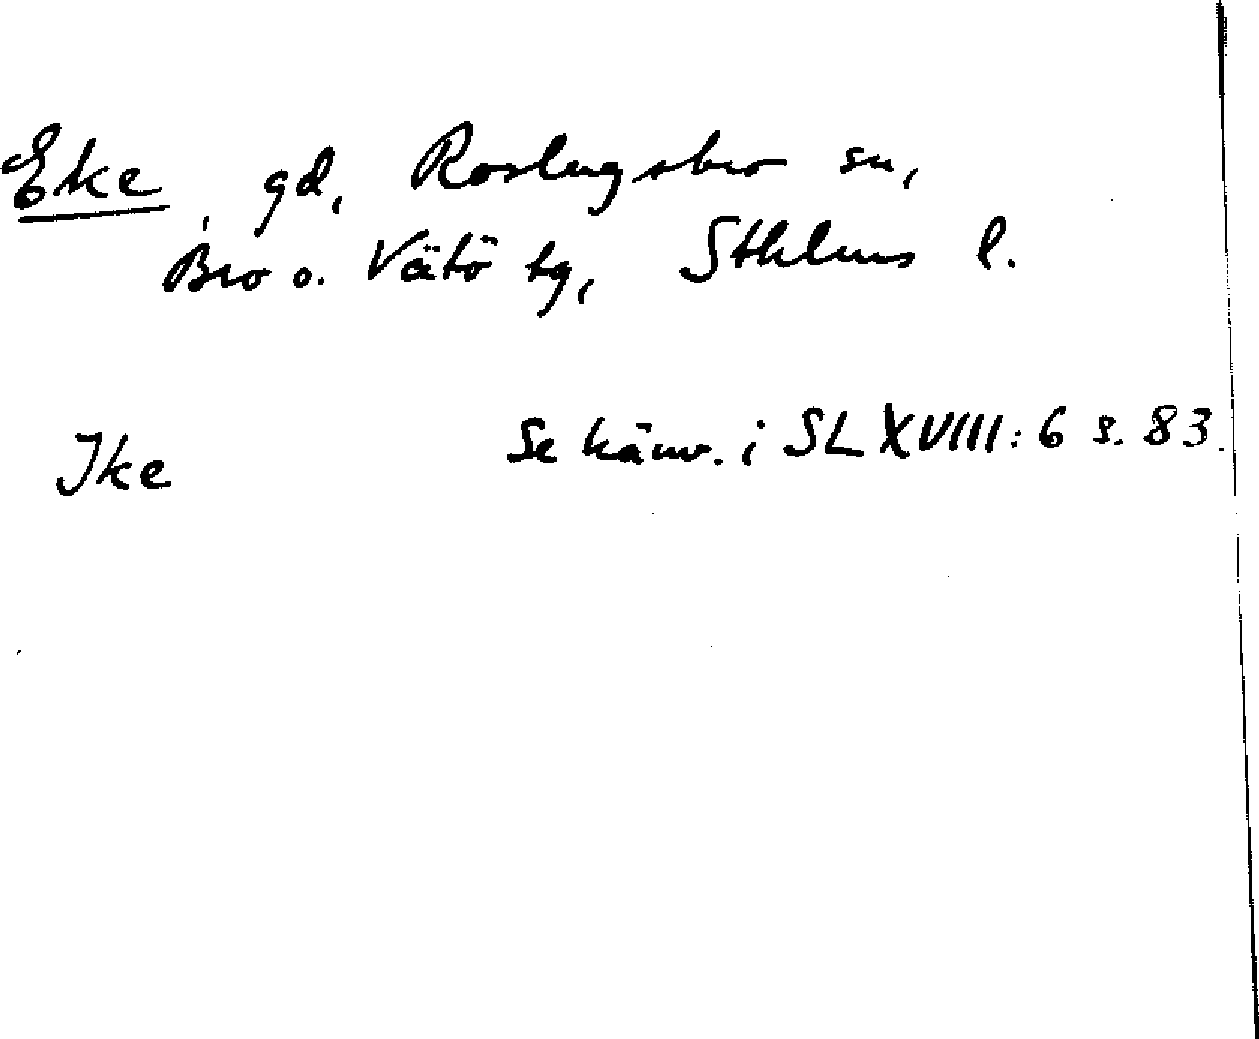 Eke, gd, Roslagsbro sn,
Bro o. Vätö tg, Sthlms l.
Ike Se hänv. i SL XVIII: 6 s. 83.